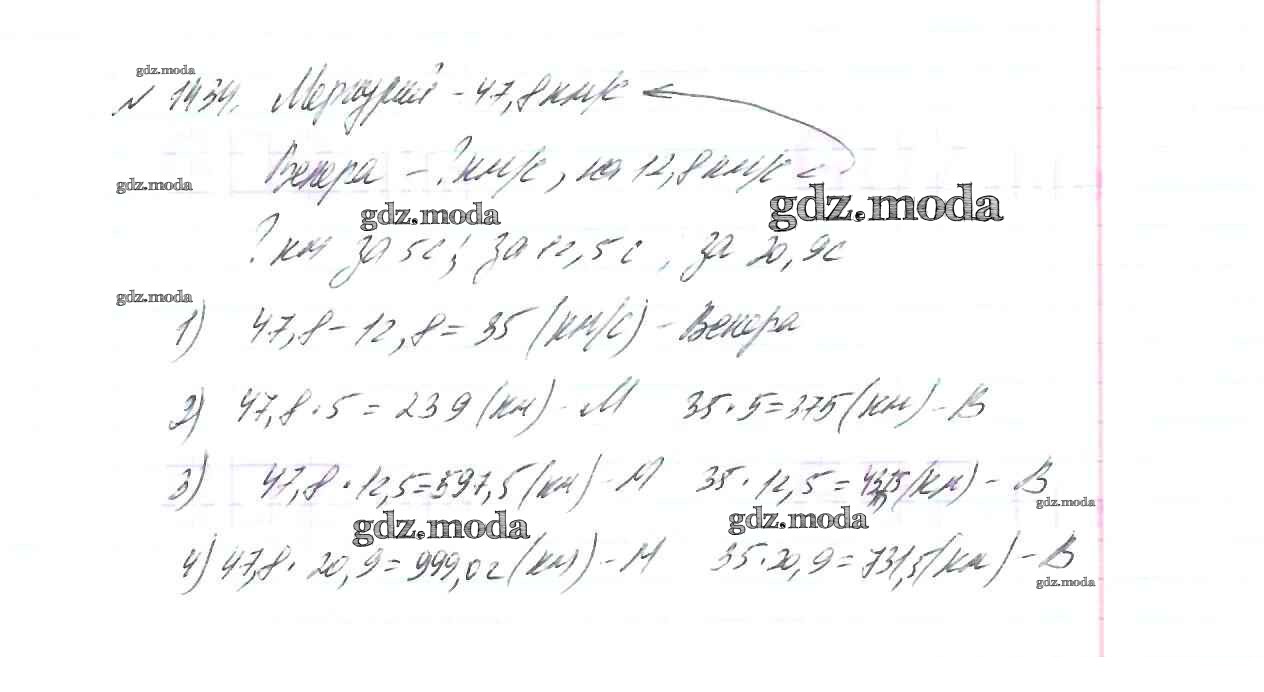 gdz.moda
№ 1434. Меркурий - 47,8 км/с
Венера - ? км/с, на 12,8 км/с <
gdz.moda
gdz.moda gdz.moda
? км за 5с; за 12,5с, за 20,9с
gdz.moda
1) 47,8 - 12,8 = 35 (км/с) - Венера
2) 47,8 · 5 = 239 (км) - М 35 · 5 = 375 (км) - В
3) 47,8 · 12,5 = 597,5 (км) - М 35 · 12,5 = 437,5 (км) - В
gdz.moda
gdz.moda gdz.moda
4) 47,8 · 20,9 = 999,02 (км) - М 35 · 20,9 = 731,5 (км) - В
gdz.moda